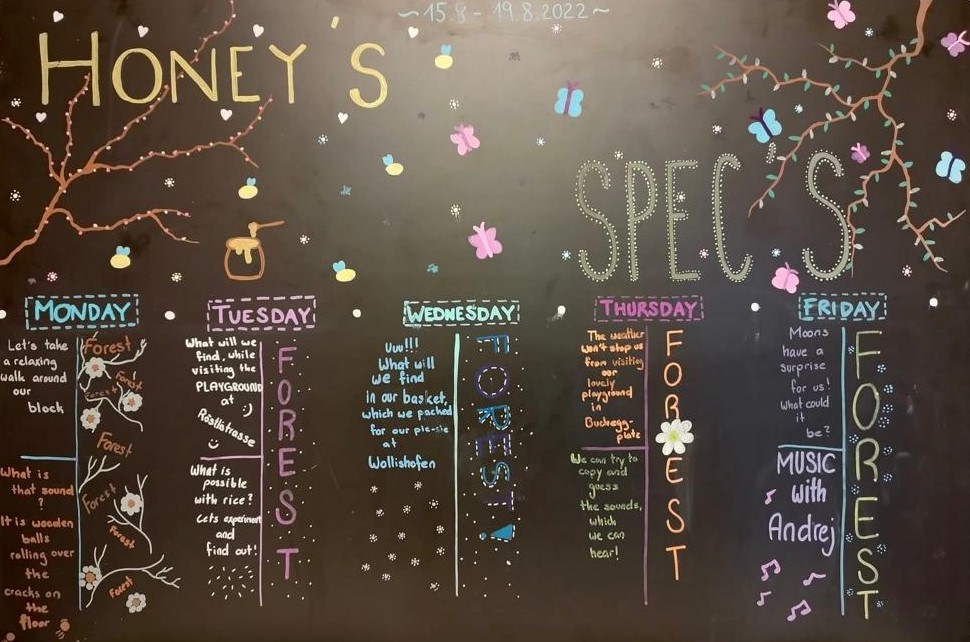 ~15.8 - 19.8.2022~
HONEY'S
SPEC'S
MONDAY
Let's take
a relaxing
walk around
our
block
What is
that sound
?
It is wooden
balls
rolling over
the
cracks on
the
floor
Forest
Forest
Forest
Forest
Forest
Forest
Forest
TUESDAY
What will we
find, while
visiting the
PLAYGROUND
at :)
Röslistrasse
What is
possible
with rice?
Lets experiment
and
find out!
FOREST
WEDNESDAY
Uuu!!!
What will
we find
in our basket,
which we packed
for our pic-nic
at
Wollishofen
FOREST!
THURSDAY
The weather
won't stop us
from visiting
our
lovely
playground
in
Buchegg-
platz
We can try to
copy and
guess
the sounds,
which
we can
hear!
FOREST
FRIDAY
Moons
have a
surprise
for us!
What could
it
be?
MUSIC
with
Andrej
FOREST